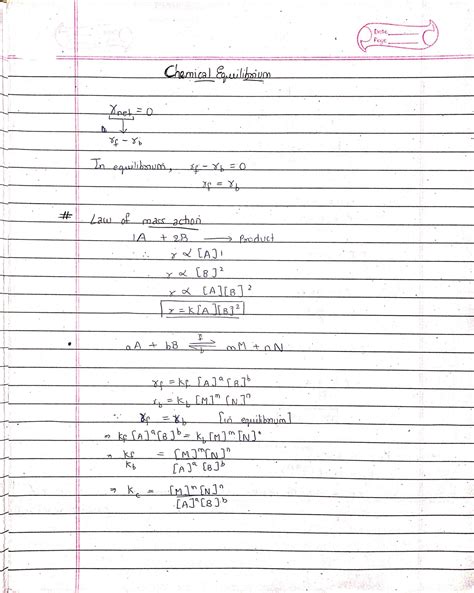 Date
Page
Chemical Equilibrium
r_net = 0
↓
r_f - r_b
In equilibrium, r_f - r_b = 0
r_f = r_b
# Law of mass action
1A + 2B ⟶ Product
∴ r ∝ [A]¹
r ∝ [B]²
r ∝ [A][B]²
r = k[A][B]²
• aA + bB ⇌ mM + nN
f
b
r_f = k_f [A]^a [B]^b
r_b = k_b [M]^m [N]^n
∵ r_f = r_b [in equilibrium]
⇒ k_f [A]^a [B]^b = k_b [M]^m [N]^n
⇒ k_f / k_b = [M]^m [N]^n / [A]^a [B]^b
⇒ K_c = [M]^m [N]^n / [A]^a [B]^b